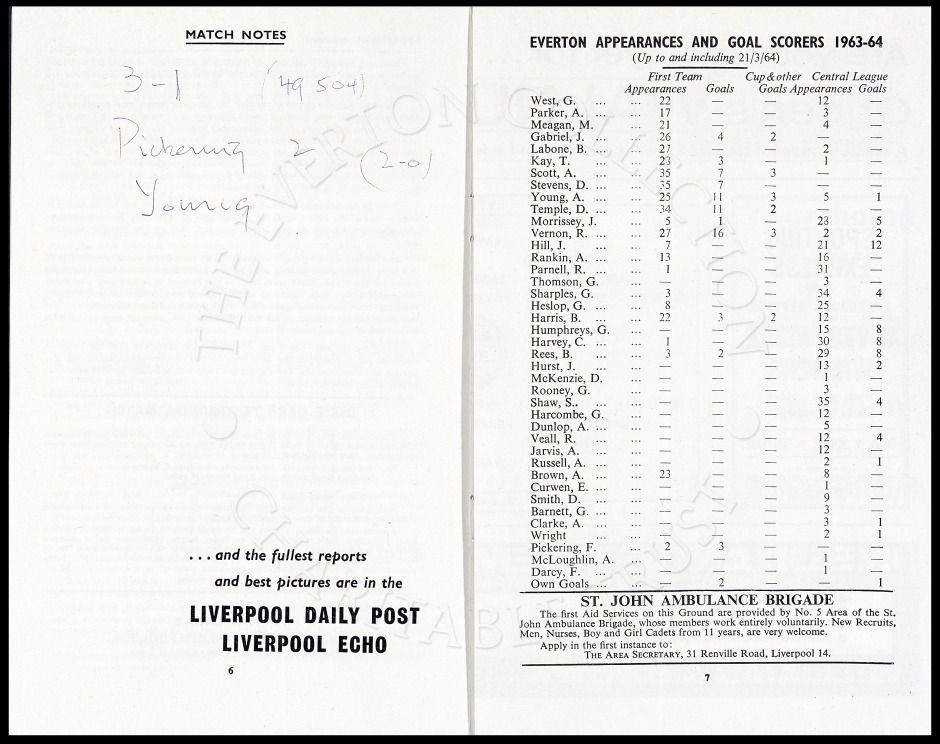 MATCH NOTES
3-1 (49 504)
Pickering 2 (2-0)
Young
... and the fullest reports
and best pictures are in the
LIVERPOOL DAILY POST
LIVERPOOL ECHO
6
EVERTON APPEARANCES AND GOAL SCORERS 1963-64
(Up to and including 21/3/64)
First Team Cup & other Central League
Appearances Goals Goals Appearances Goals
West, G. ... ... 22 — — 12 —
Parker, A. ... ... 17 — — 3 —
Meagan, M. ... 21 — — 4 —
Gabriel, J. ... ... 26 4 2 — —
Labone, B. ... ... 27 — — 2 —
Kay, T. ... ... 23 3 — 1 —
Scott, A. ... ... 35 7 3 — —
Stevens, D. ... ... 35 7 — — —
Young, A. ... ... 25 11 3 5 1
Temple, D. ... ... 34 11 2 — —
Morrissey, J. ... 5 1 — 23 5
Vernon, R. ... ... 27 16 3 2 2
Hill, J. ... ... 7 — — 21 12
Rankin, A. ... ... 13 — — 16 —
Parnell, R. ... ... 1 — — 31 —
Thomson, G. ... — — — 3 —
Sharples, G. ... 3 — — 34 4
Heslop, G. ... ... 8 — — 25 —
Harris, B. ... ... 22 3 2 12 —
Humphreys, G. ... — — — 15 8
Harvey, C. ... ... 1 — — 30 8
Rees, B. ... ... 3 2 — 29 8
Hurst, J. ... ... — — — 13 2
McKenzie, D. ... — — — 1 —
Rooney, G. ... — — — 3 —
Shaw, S.. ... ... — — — 35 4
Harcombe, G. ... — — — 12 —
Dunlop, A. ... ... — — — 5 —
Veall, R. ... ... — — — 12 4
Jarvis, A. ... ... — — — 12 —
Russell, A. ... ... — — — 2 1
Brown, A. ... ... 23 — — 8 —
Curwen, E. ... ... — — — 1 —
Smith, D. ... ... — — — 9 —
Barnett, G. ... ... — — — 3 —
Clarke, A. ... ... — — — 3 1
Wright ... ... — — — 2 1
Pickering, F. ... 2 3 — — —
McLoughlin, A. ... — — — 1 —
Darcy, F. ... ... — — — 1 —
Own Goals ... ... — 2 — — 1
ST. JOHN AMBULANCE BRIGADE
The first Aid Services on this Ground are provided by No. 5 Area of the St.
John Ambulance Brigade, whose members work entirely voluntarily. New Recruits,
Men, Nurses, Boy and Girl Cadets from 11 years, are very welcome.
Apply in the first instance to:
THE AREA SECRETARY, 31 Renville Road, Liverpool 14.
7
THE EVERTON COLLECTION
CHARITABLE TRUST